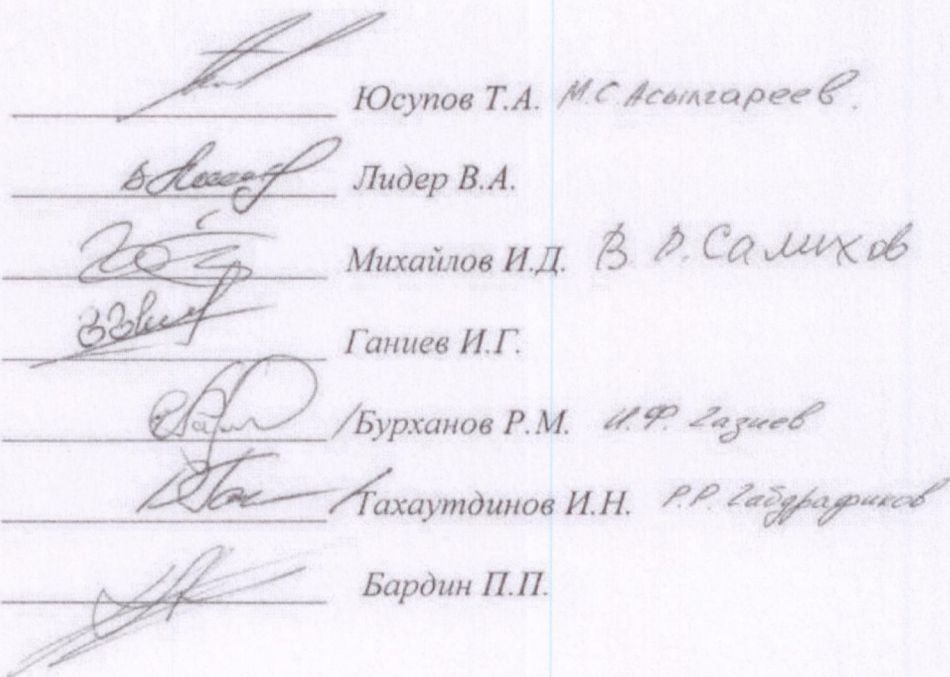 Юсупов Т.А. М.С. Асылгареев.
Лидер В.А.
Михайлов И.Д. В. Р. Салихов
Ганиев И.Г.
/Бурханов Р.М. И.Ф. Газиев
/Тахаутдинов И.Н. Р.Р. Габдрафиков
Бардин П.П.